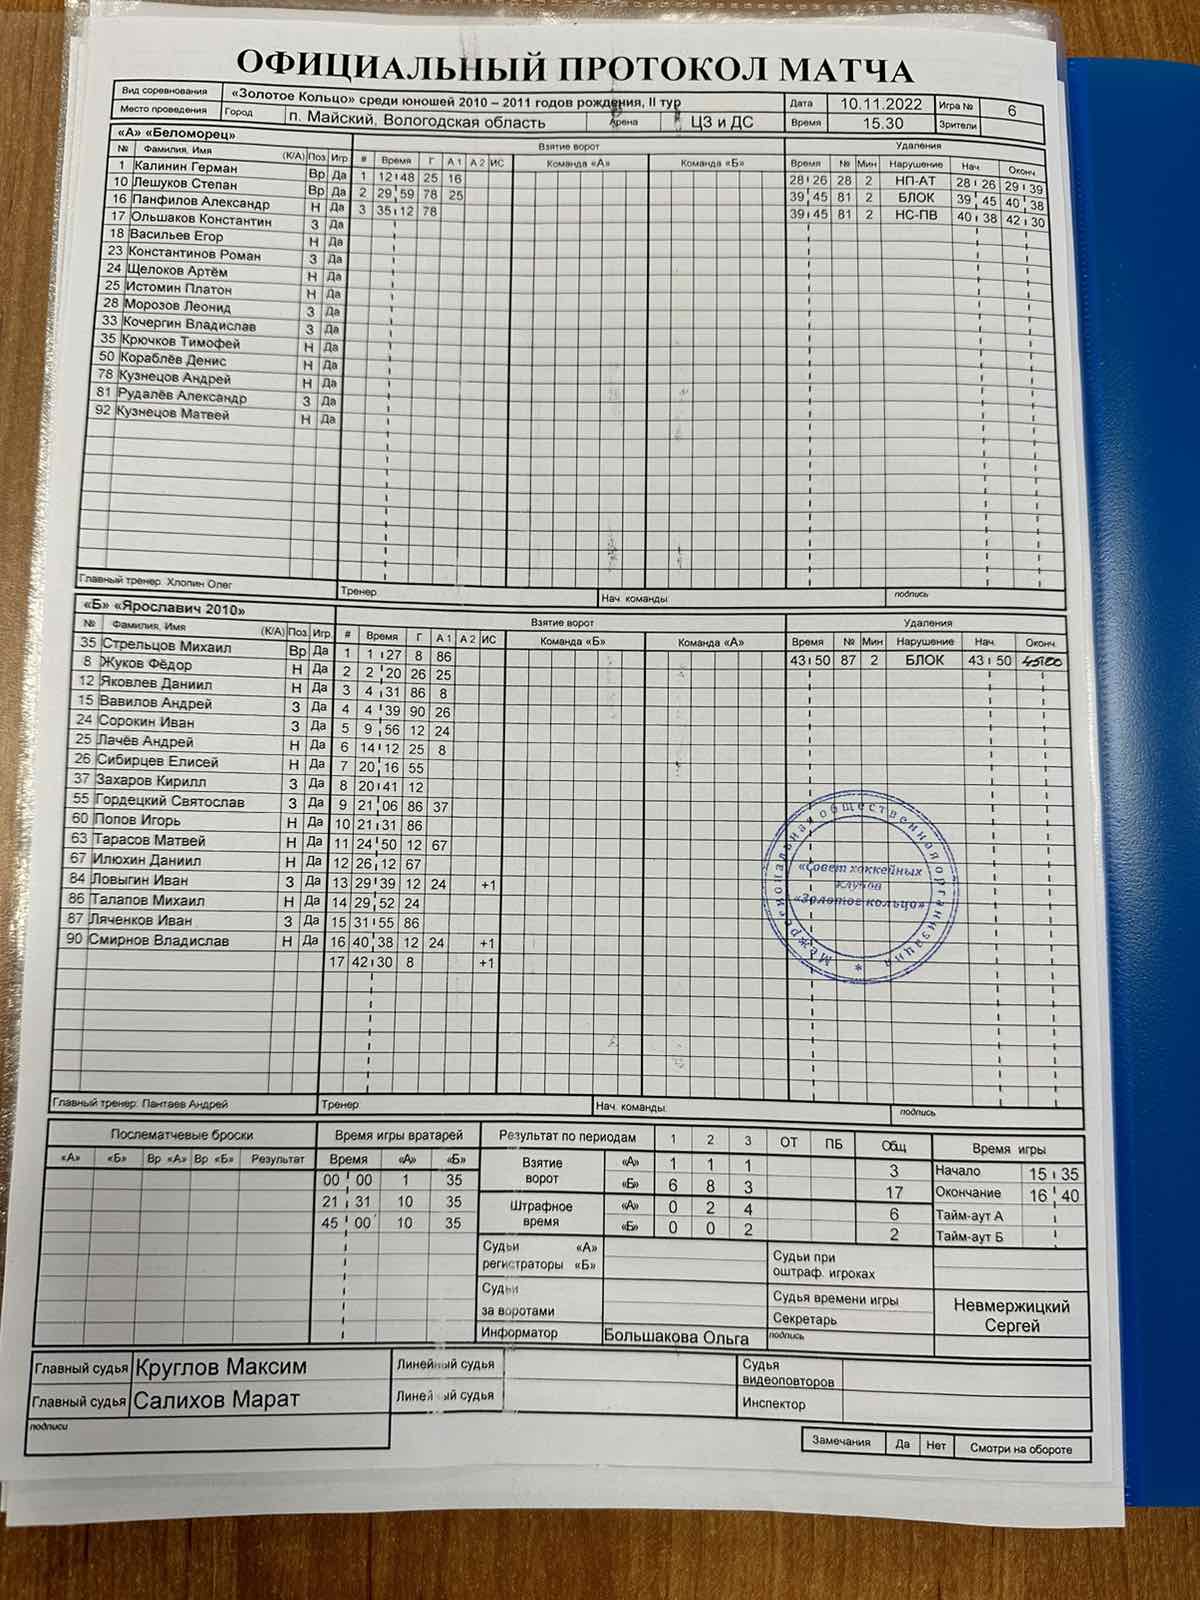 ОФИЦИАЛЬНЫЙ ПРОТОКОЛ МАТЧА
Вид соревнования «Золотое Кольцо» среди юношей 2010 – 2011 годов рождения, II тур Дата 10.11.2022 Игра № 6
Место проведения Город п. Майский, Вологодская область Арена ЦЗ и ДС Время 15.30 Зрители
«А» «Беломорец» Взятие ворот Удаления
№ Фамилия, Имя (К/А) Поз Игр # Время Г А 1 А 2 ИС Команда «А» Команда «Б» Время № Мин Нарушение Нач. Оконч.
1 Калинин Герман Вр Да 1 12 48 25 16 28 26 28 2 НП-АТ 28 26 29 39
10 Лешуков Степан Вр Да 2 29 59 78 25 39 45 81 2 БЛОК 39 45 40 38
16 Панфилов Александр Н Да 3 35 12 78 39 45 81 2 НС-ПВ 40 38 42 30
17 Ольшаков Константин З Да
18 Васильев Егор Н Да
23 Константинов Роман З Да
24 Щелоков Артём Н Да
25 Истомин Платон Н Да
28 Морозов Леонид З Да
33 Кочергин Владислав З Да
35 Крючков Тимофей Н Да
50 Кораблёв Денис Н Да
78 Кузнецов Андрей Н Да
81 Рудалёв Александр З Да
92 Кузнецов Матвей Н Да
Главный тренер: Хлопин Олег Тренер Нач. команды подпись
«Б» «Ярославич 2010» Взятие ворот Удаления
№ Фамилия, Имя (К/А) Поз Игр # Время Г А 1 А 2 ИС Команда «Б» Команда «А» Время № Мин Нарушение Нач. Оконч.
35 Стрельцов Михаил Вр Да 1 1 27 8 86 43 50 87 2 БЛОК 43 50 45 00
8 Жуков Фёдор Н Да 2 2 20 26 25
12 Яковлев Даниил Н Да 3 4 31 86 8
15 Вавилов Андрей З Да 4 4 39 90 26
24 Сорокин Иван З Да 5 9 56 12 24
25 Лачёв Андрей Н Да 6 14 12 25 8
26 Сибирцев Елисей Н Да 7 20 16 55
37 Захаров Кирилл З Да 8 20 41 12
55 Гордецкий Святослав З Да 9 21 06 86 37
60 Попов Игорь Н Да 10 21 31 86
63 Тарасов Матвей Н Да 11 24 50 12 67
67 Илюхин Даниил Н Да 12 26 12 67
84 Ловыгин Иван З Да 13 29 39 12 24 +1
86 Талапов Михаил Н Да 14 29 52 24
87 Ляченков Иван З Да 15 31 55 86
90 Смирнов Владислав Н Да 16 40 38 12 24 +1
17 42 30 8 +1
Межрегиональная общественная организация *
«Совет хоккейных
клубов
«Золотое кольцо»
Главный тренер: Пантаев Андрей Тренер Нач. команды: подпись
Послематчевые броски Время игры вратарей Результат по периодам 1 2 3 ОТ ПБ Общ Время игры
«А» «Б» Вр «А» Вр «Б» Результат Время «А» «Б» Взятие ворот «А» 1 1 1 3 Начало 15 35
00 00 1 35 «Б» 6 8 3 17 Окончание 16 40
21 31 10 35 Штрафное время «А» 0 2 4 6 Тайм-аут А
45 00 10 35 «Б» 0 0 2 2 Тайм-аут Б
Судьи «А»
регистраторы «Б» Судьи при
оштраф. игроках
Судьи
за воротами Судья времени игры Невмержицкий
Сергей
Секретарь
Информатор Большакова Ольга подпись
Главный судья Круглов Максим Линейный судья Судья
видеоповторов
Главный судья Салихов Марат Линейный судья Инспектор
подписи
Замечания Да Нет Смотри на обороте